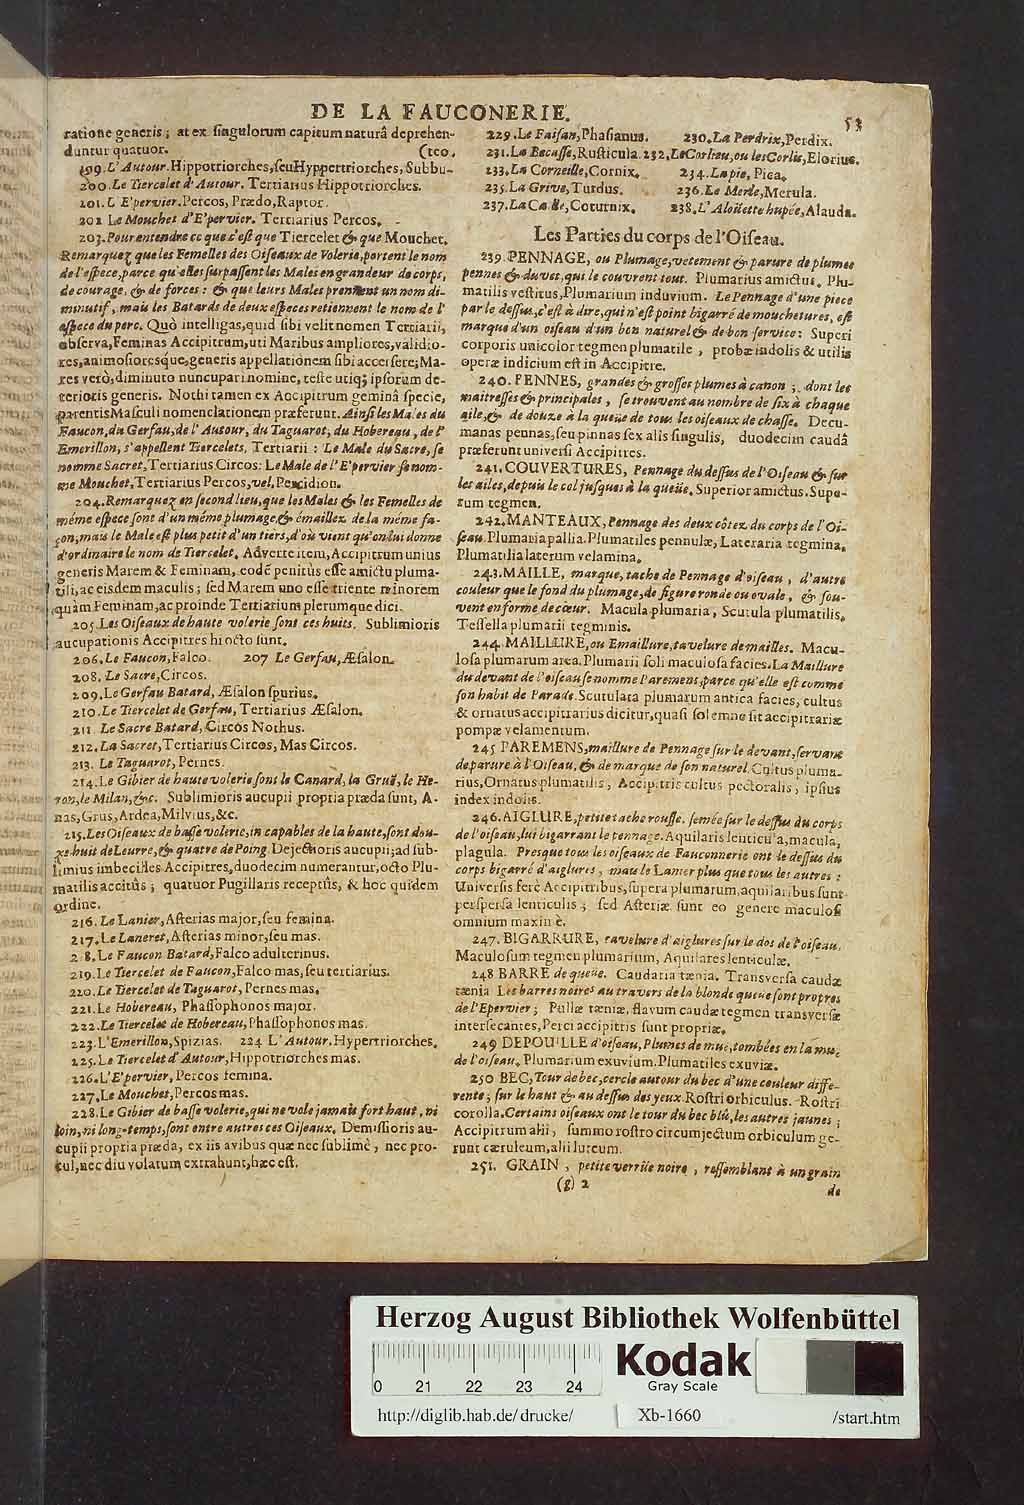 DE LA FAUCONERIE.
53
ratione generis; at ex singulorum capitum naturâ deprehen-
duntur quatuor. (teo.
199. L'Autour. Hippotriorches, seu Hyppertriorches, Subbu-
200. Le Tiercelet d'Autour. Tertiarius Hippotriorches.
201. L'E'pervier. Percos, Prædo, Raptor.
202 Le Mouchet d'E'pervier. Tertiarius Percos.
203. Pour entendre ce que c'est que Tiercelet & que Mouchet,
Remarquez que les Femelles des Oiseaux de Volerie, portent le nom
de l'espece, parce qu'elles surpassent les Males en grandeur de corps,
de courage, & de forces: & que leurs Males prennent un nom di-
minutif, mais les Batards de deux especes retiennent le nom de l'
espece du perc. Quò intelligas, quid sibi velit nomen Tertiarii,
observa, Feminas Accipitrum, uti Maribus ampliores, validio-
res, animosioresque, generis appellationem sibi accersere; Ma-
res verò, diminuto nuncupari nomine, teste utiq; ipsorum de-
terioris generis. Nothi tamen ex Accipitrum geminâ specie,
parentis Masculi nomenclationem præferunt. Ainsi les Males du
Faucon, du Gerfau, de l'Autour, du Taguarot, du Hobereau, de l'
Emerillon, s'appellent Tiercelets, Tertiarii: Le Male du Sacre, se
nomme Sacret, Tertiarius Circos: Le Male de l'E'pervier se nom-
me Mouchet, Tertiarius Percos, vel, Percidion.
204. Remarquez en second lieu, que les Males & les Femelles de
méme espece sont d'un méme plumage, & émaillez de la méme fa-
çon, mais le Male est plus petit d'un tiers, d'où vient qu'on lui donne
d'ordinaire le nom de Tiercelet. Adverte item, Accipitrum unius
generis Marem & Feminam, eodē penitùs esse amictu pluma-
tili, ac eisdem maculis; sed Marem uno esse triente minorem
quàm Feminam, ac proinde Tertiarium plerumque dici.
205. Les Oiseaux de haute volerie sont ces huits. Sublimioris
aucupationis Accipitres hi octo sunt.
206. Le Faucon, Falco. 207 Le Gerfau, Æsalon.
208. Le Sacre, Circos.
209. Le Gerfau Batard, Æsalon spurius.
210. Le Tiercelet de Gerfau, Tertiarius Æsalon.
211 Le Sacre Batard, Circos Nothus.
212. La Sacret, Tertiarius Circos, Mas Circos.
213. Le Taguarot, Pernes.
214. Le Gibier de haute volerie sont le Canard, la Gruë, le He-
ron, le Milan, &c. Sublimioris aucupii propria præda sunt, A-
nas, Grus, Ardea, Milvius, &c.
215. Les Oiseaux de basse volerie, incapables de la haute, sont dou-
ze: huit de Leurre, & quatre de Poing Dejectioris aucupii; ad sub-
limius imbecilles Accipitres, duodecim numerantur, octo Plu-
matilis accitûs; quatuor Pugillaris receptûs, & hoc quidem
ordine.
216. Le Lanier, Asterias major, seu femina.
217. Le Laneret, Asterias minor, seu mas.
2 8. Le Faucon Batard, Falco adulterinus.
219. Le Tiercelet de Faucon, Falco mas, seu tertiarius.
220. Le Tiercelet de Taguarot, Pernes mas.
221. Le Hobereau, Phassophonos major.
222. Le Tiercelet de Hobereau, Phassophonos mas.
223. L'Emerillon, Spizias. 224 L'Autour, Hypertriorches.
225. Le Tiercelet d'Autour, Hippotriorches mas.
226. L'E'pervier, Percos femina.
227. Le Mouchet, Percos mas.
228. Le Gibier de basse volerie, qui ne vole jamais fort haut, ni
loin, ni long-temps, sont entre autres ces Oiseaux. Demissioris au-
cupii propria præda, ex iis avibus quæ nec sublimè, nec pro-
cul, nec diu volatum extrahunt, hæc est.
229. Le Faisan, Phasianus. 230. La Perdrix, Perdix.
231. La Becasse, Rusticula. 232. Le Corlieu, ou les Corlis, Elorius.
233. La Corneille, Cornix. 234. La pie, Pica.
235. La Grive, Turdus. 236. Le Merle, Merula.
237. La Caille, Coturnix. 238. L'Aloüette hupée, Alauda.
Les Parties du corps de l'Oiseau.
239. PENNAGE, ou Plumage, vetement & parure de plumes
pennes & duvet, qui le couvrent tout. Plumarius amictus. Plu-
matilis vestitus, Plumarium induvium. Le Pennage d'une piece
par le dessus, c'est à dire, qui n'est point bigarré de mouchetures, est
marque d'un oiseau d'un bon naturel & de bon service: Superi
corporis unicolor tegmen plumatile, probæ indolis & utilis
operæ indicium est in Accipitre.
240. PENNES, grandes & grosses plumes à canon; dont les
maitresses & principales, se trouvent au nombre de six à chaque
aile, & de douze à la queüe de tous les oiseaux de chasse. Decu-
manas pennas, seu pinnas sex alis singulis, duodecim caudâ
præferunt universi Accipitres.
241. COUVERTURES, Pennage du dessus de l'Oiseau & sur
les ailes, depuis le col jusques à la queüe. Superior amictus. Supe-
rum tegmen.
242. MANTEAUX, Pennage des deux côtez du corps de l'Oi-
seau. Plumaria pallia. Plumatiles pennulæ, Lateraria tegmina.
Plumatilia laterum velamina.
243. MAILLE, marque, tache de Pennage d'oiseau, d'autre
couleur que le fond du plumage, de figure ronde ou ovale, & sou-
vent en forme de cœur. Macula plumaria, Scutula plumatilis,
Tessella plumarii tegminis.
244. MAILLURE, ou Emaillure, tavelure de mailles. Macu-
losa plumarum area. Plumarii soli maculosa facies. La Maillure
du devant de l'oiseau se nomme Paremens, parce qu'elle est comme
son habit de Parade. Scutulata plumarum antica facies, cultus
& ornatus accipitrarius dicitur, quasi solemne sit accipitrariæ
pompæ velamentum.
245 PAREMENS, maillure de Pennage sur le devant, servant
de parure à l'Oiseau, & de marque de son naturel. Cultus pluma-
rius, Ornatus plumatilis, Accipitris cultus pectoralis, ipsius
index indolis.
246. AIGLURE, petite tache rousse. semée sur le dessus du corps
de l'oiseau, lui bigarrant le pennage. Aquilaris lenticula, macula,
plagula. Presque tous les oiseaux de Fauconnerie ont le dessus du
corps bigarré d'aiglures, mais le Lanier plus que tous les autres:
Universis ferè Accipitribus, supera plumarum, aquilaribus sunt
perspersa lenticulis; sed Asteriæ sunt eo genere maculosi
omnium maximè.
247. BIGARRURE, tavelure d'aiglures sur le dos de l'oiseau.
Maculosum tegmen plumarium, Aquilares lenticulæ.
248 BARRE de queüe. Caudaria tænia. Transversa caudæ
tænia Les barres noires au travers de la blonde queue sont propres
de l'Epervier; Pullæ tæniæ, flavum caudæ tegmen transversæ
intersecantes, Perci accipitris sunt propriæ.
249 DEPOUILLE d'oiseau, Plumes de mue, tombées en la mue
de l'oiseau, Plumarium exuvium. Plumatiles exuviæ.
250 BEC, Tour de bec, cercle autour du bec d'une couleur diffe-
rente, sur le haut & au dessus des yeux. Rostri orbiculus. Rostri
corolla. Certains oiseaux ont le tour du bec blû, les autres jaunes;
Accipitrum alii, summo rostro circumjectum orbiculum ge-
runt cæruleum, alii luteum.
251. GRAIN, petite verrüe noire, ressemblant à un grain
(g) 2
de
Herzog August Bibliothek Wolfenbüttel
0 21 22 23 24
Kodak
Gray Scale
http://diglib.hab.de/drucke/
Xb-1660
/start.htm